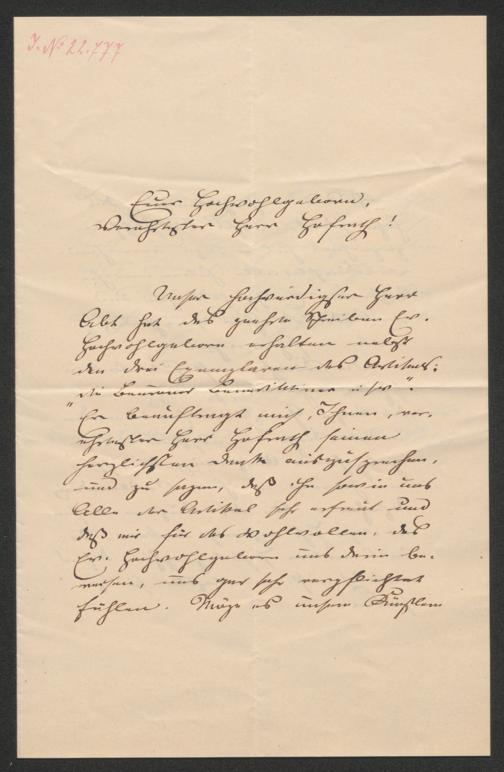 J. No 22.777
Euer Hochwohlgeboren,
Verehrtester Herr Hofrath!
Unser hochwürdigster Herr
Abt hat das geehrte Schreiben Ew.
Hochwohlgeboren erhalten nebst
den drei Exemplaren des Artikels:
"die Beuroner Benediktiner usw".
Er beauftragt mich, Ihnen, ver-
ehrtester Herr Hofrath seinen
herzlichsten Dank auszusprechen,
und zu sagen, daß ihn sowie uns
Alle der Artikel sehr erfreut und
daß wir für das Wohlwollen, das
Ew. Hochwohlgeboren uns darin be-
weisen, uns gar sehr verpflichtet
fühlen. Möge es unsern Künstlern